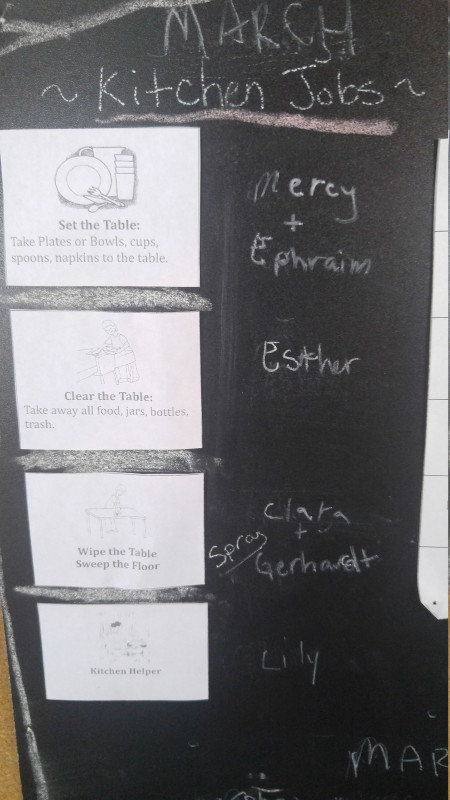 MARCH
~ Kitchen Jobs ~
Set the Table:
Take Plates or Bowls, cups,
spoons, napkins to the table.
Mercy
+
Ephraim
Clear the Table:
Take away all food, jars, bottles,
trash.
Esther
Wipe the Table
Sweep the Floor
Clara
+
Spray
Gerhardt
Kitchen Helper
Lily
MAR